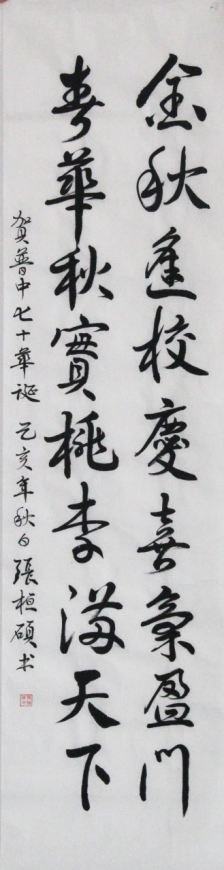 金秋逢校慶喜氣盈門
春華秋實桃李滿天下
賀晉中七十華誕 乙亥年秋日 張桓碩书